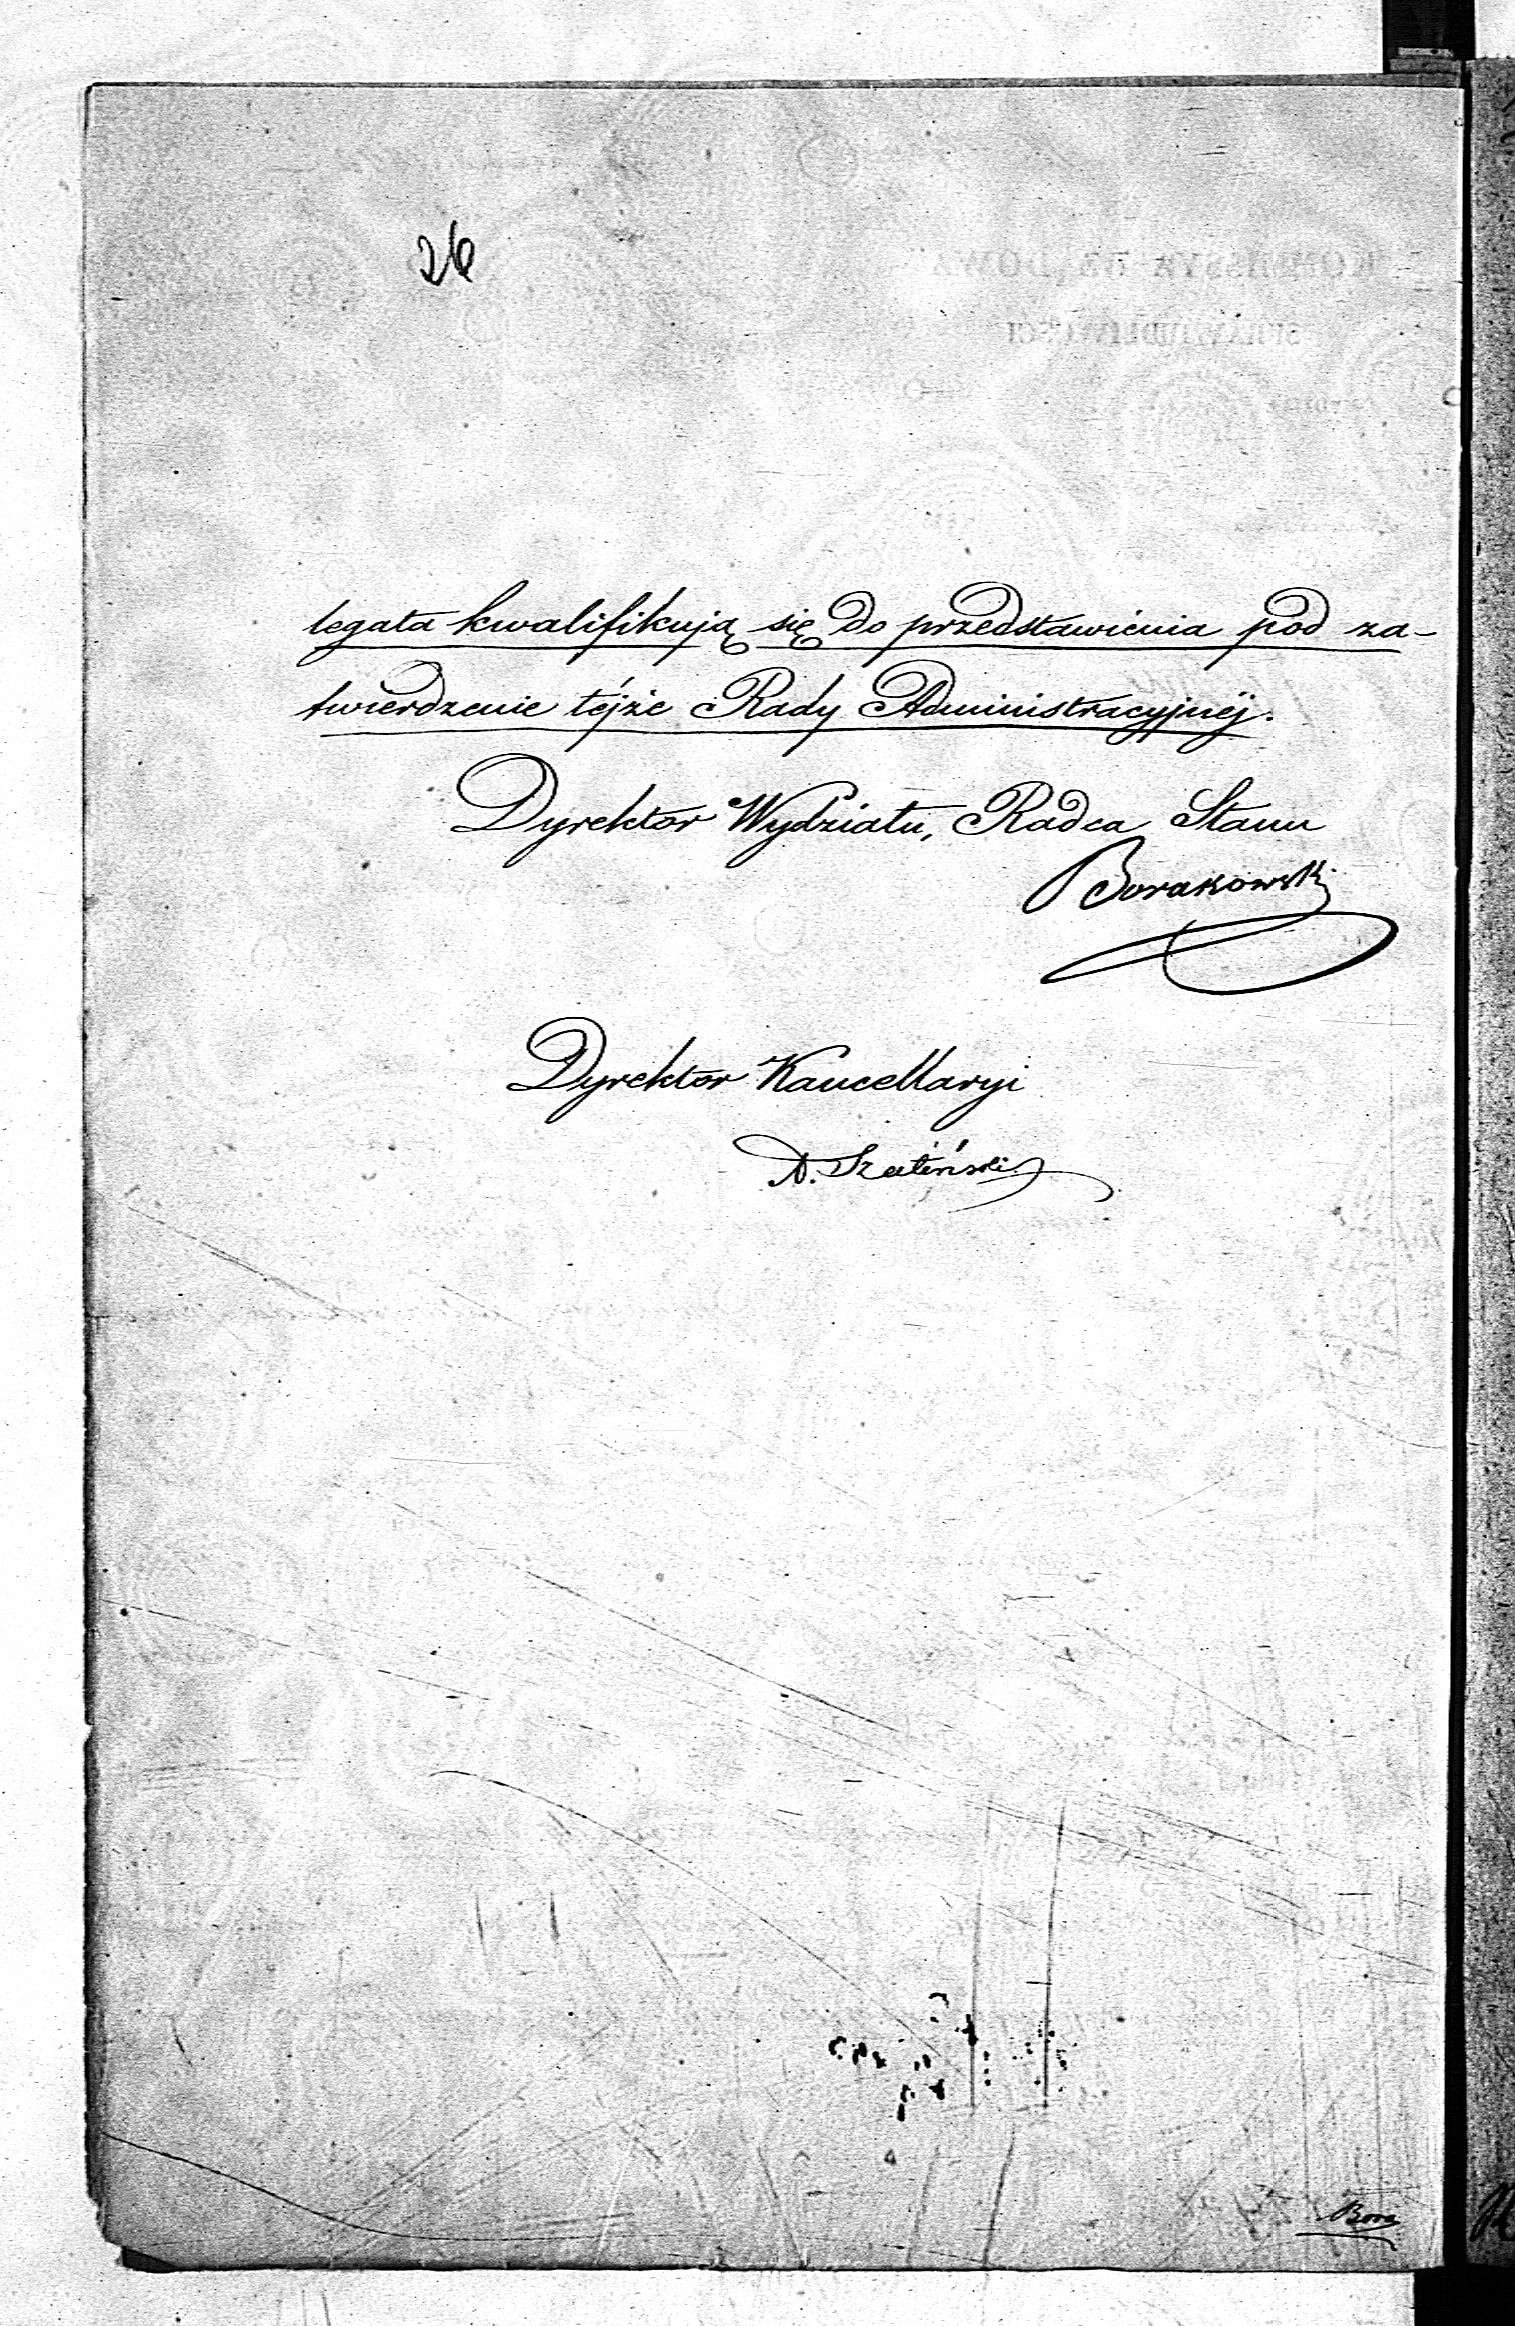 26
legata kwalifikują się do przedstawienia pod za-
twierdzenie téjże Rady Administracyjnéj.
Dyrektor Wydziału, Radca Stanu
Borakowski
Dyrektor Kancellaryi